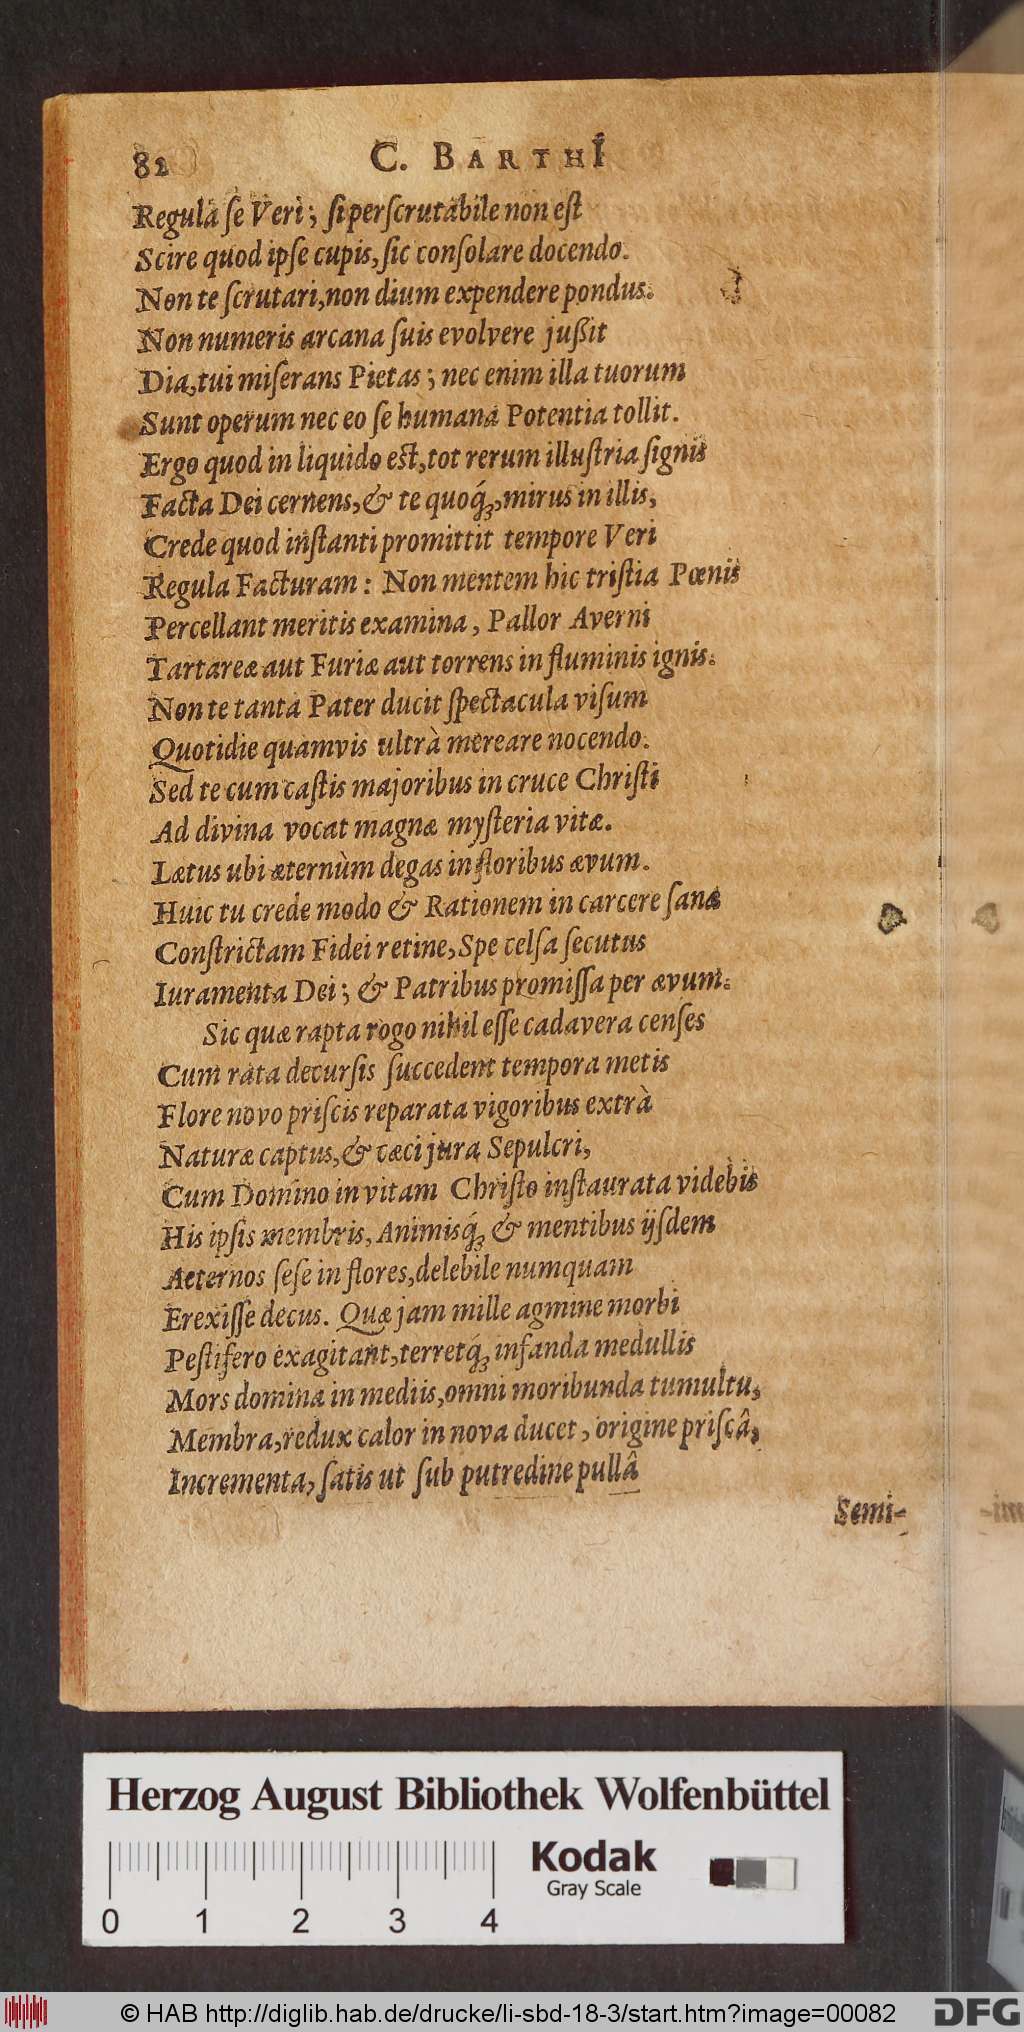 82 C. BARTHI
Regula ſe Veri; ſi perſcrutabile non eſt
Scire quod ipſe cupis, ſic conſolare docendo.
Non te ſcrutari, non dium expendere pondus.
Non numeris arcana ſuis evolvere jußit
Dia, tui miſerans Pietas; nec enim illa tuorum
Sunt operum nec eo ſe humana Potentia tollit.
Ergo quod in liquido est, tot rerum illuſtria ſignis
Facta Dei cernens, & te quoq́ꝫ, mirus in illis,
Crede quod inſtanti promittit tempore Veri
Regula Facturam: Non mentem hic triſtia Pœnis
Percellant meritis examina, Pallor Averni
Tartareæ aut Furiæ aut torrens in fluminis ignis.
Non te tanta Pater ducit ſpectacula viſum
Quotidie quamvis ultrà mereare nocendo.
Sed te cum caſtis majoribus in cruce Chriſti
Ad divina vocat magnæ myſteria vitæ.
Lætus ubi æternùm degas in floribus ævum.
Huic tu crede modo & Rationem in carcere ſanæ
Conſtrictam Fidei retine, Spe celſa ſecutus
Iuramenta Dei; & Patribus promiſſa per ævum.
Sic quæ rapta rogo nihil eſſe cadavera cenſes
Cum rata decurſis ſuccedent tempora metis
Flore novo priſcis reparata vigoribus extrà
Naturæ captus, & cæci jura Sepulcri,
Cum Domino in vitam Chriſto inſtaurata videbis
His ipſis membris, Animisq́ꝫ & mentibus ijſdem
Aeternos ſeſe in flores, delebile numquam
Erexiſſe decus. Quæ jam mille agmine morbi
Peſtifero exagitant, terretq́ꝫ infanda medullis
Mors domina in mediis, omni moribunda tumultu,
Membra, redux calor in nova ducet, origine priſcâ,
Incrementa, ſatis ut ſub putredine pullâ
Semi-
Herzog August Bibliothek Wolfenbüttel
Kodak
Gray Scale
0 1 2 3 4
© HAB http://diglib.hab.de/drucke/li-sbd-18-3/start.htm?image=00082
DFG